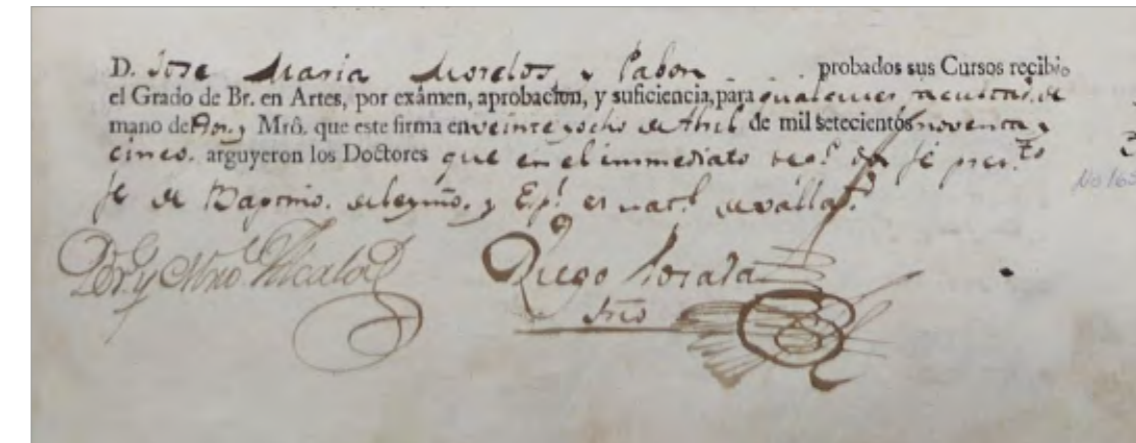 D. Jose Maria Morelos y Pabon probados sus Cursos recibio
el Grado de Br. en Artes, por exámen, aprobacion, y suficiencia, para qualquier facultad. de
mano del Dor. y Mrô. que este firma en veinte y ocho de Abril de mil setecientos noventa y
cinco. arguyeron los Doctores que en el immediato de fe presto
fe de Baptmo. de legmo. y Espl. es natl. de Vallad.
Dr. y Mro. Alcala
Diego Posada
Srio
No 165